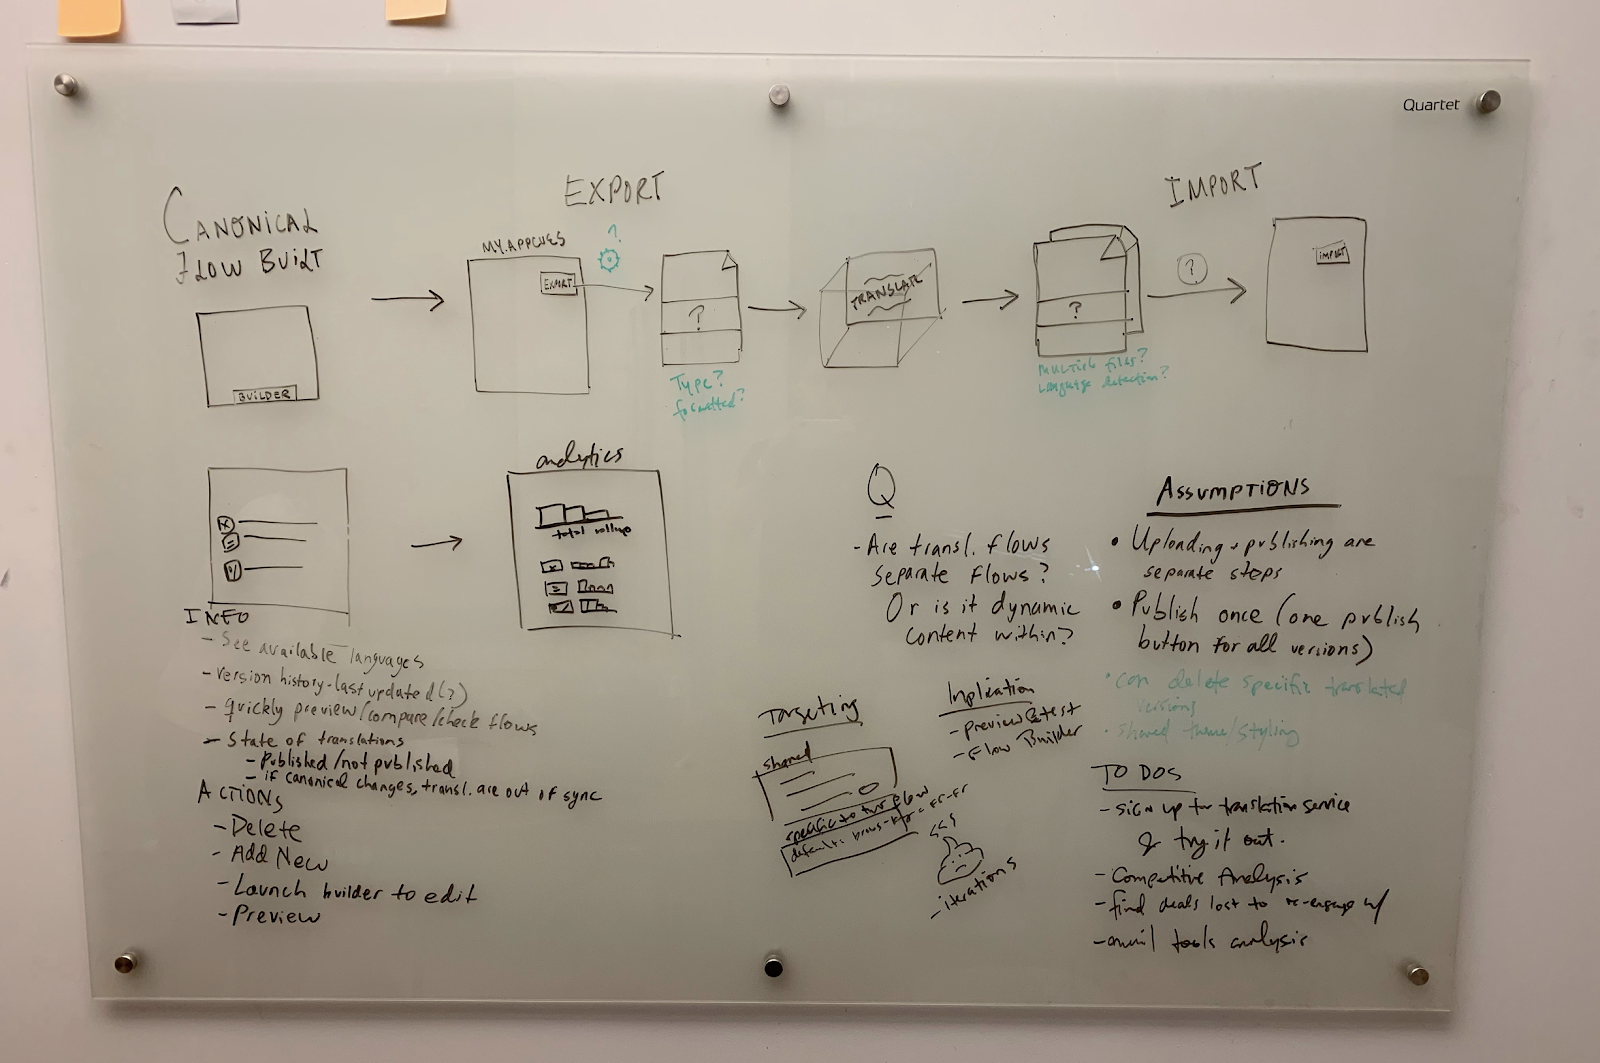 Quartet
CANONICAL
FLOW BUILT
BUILDER
EXPORT
MY.APPCUES
EXPORT
?
?
Type?
formatted?
TRANSLATE
IMPORT
?
Multiple files?
Language detection?
?
IMPORT
INFO
- See available languages
- version history - last updated (?)
- quickly preview/compare/check flows
- State of translations
- Published/not published
- if canonical changes, transl. are out of sync
ACTIONS
- Delete
- Add New
- Launch builder to edit
- Preview
analytics
total rollup
Q
- Are transl. flows
separate flows?
Or is it dynamic
content within?
Targeting
shared
specific to the flow
default:
Implication
- preview & test
- Flow Builder
- iterations
ASSUMPTIONS
• Uploading + publishing are
separate steps
• Publish once (one publish
button for all versions)
• can delete specific translated
versions
• shared theme/styling
TO DOS
- sign up for translation service
& try it out.
- Competitive Analysis
- find deals lost to re-engage w/
- email tools analysis